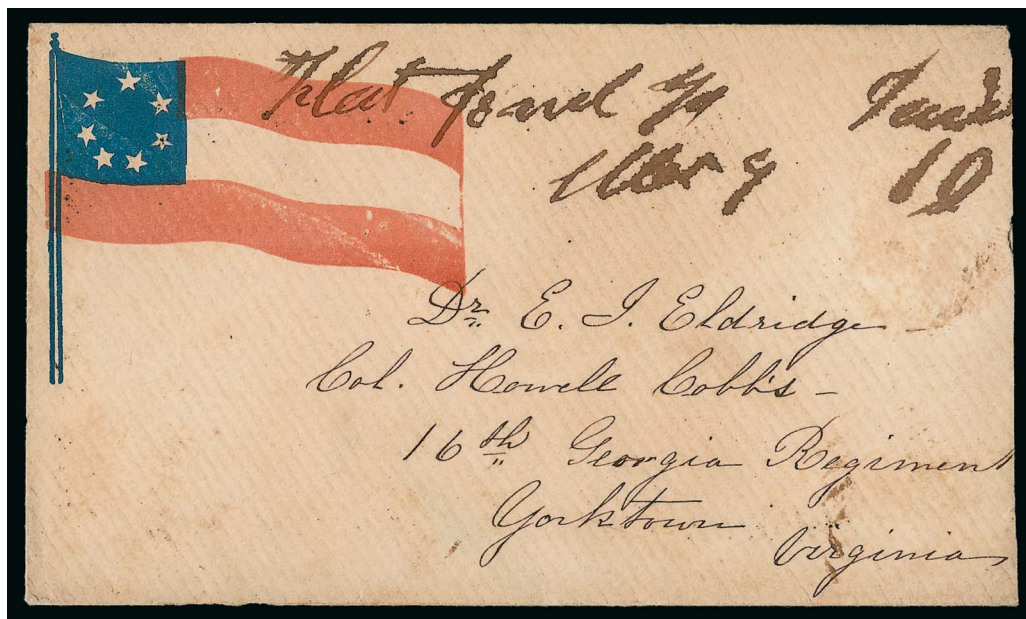 Flat Pond Ga Paid
Nov 9 10
Dr. E. J. Eldridge
Col. Howell Cobb's
16th Georgia Regiment
Yorktown
Virginia